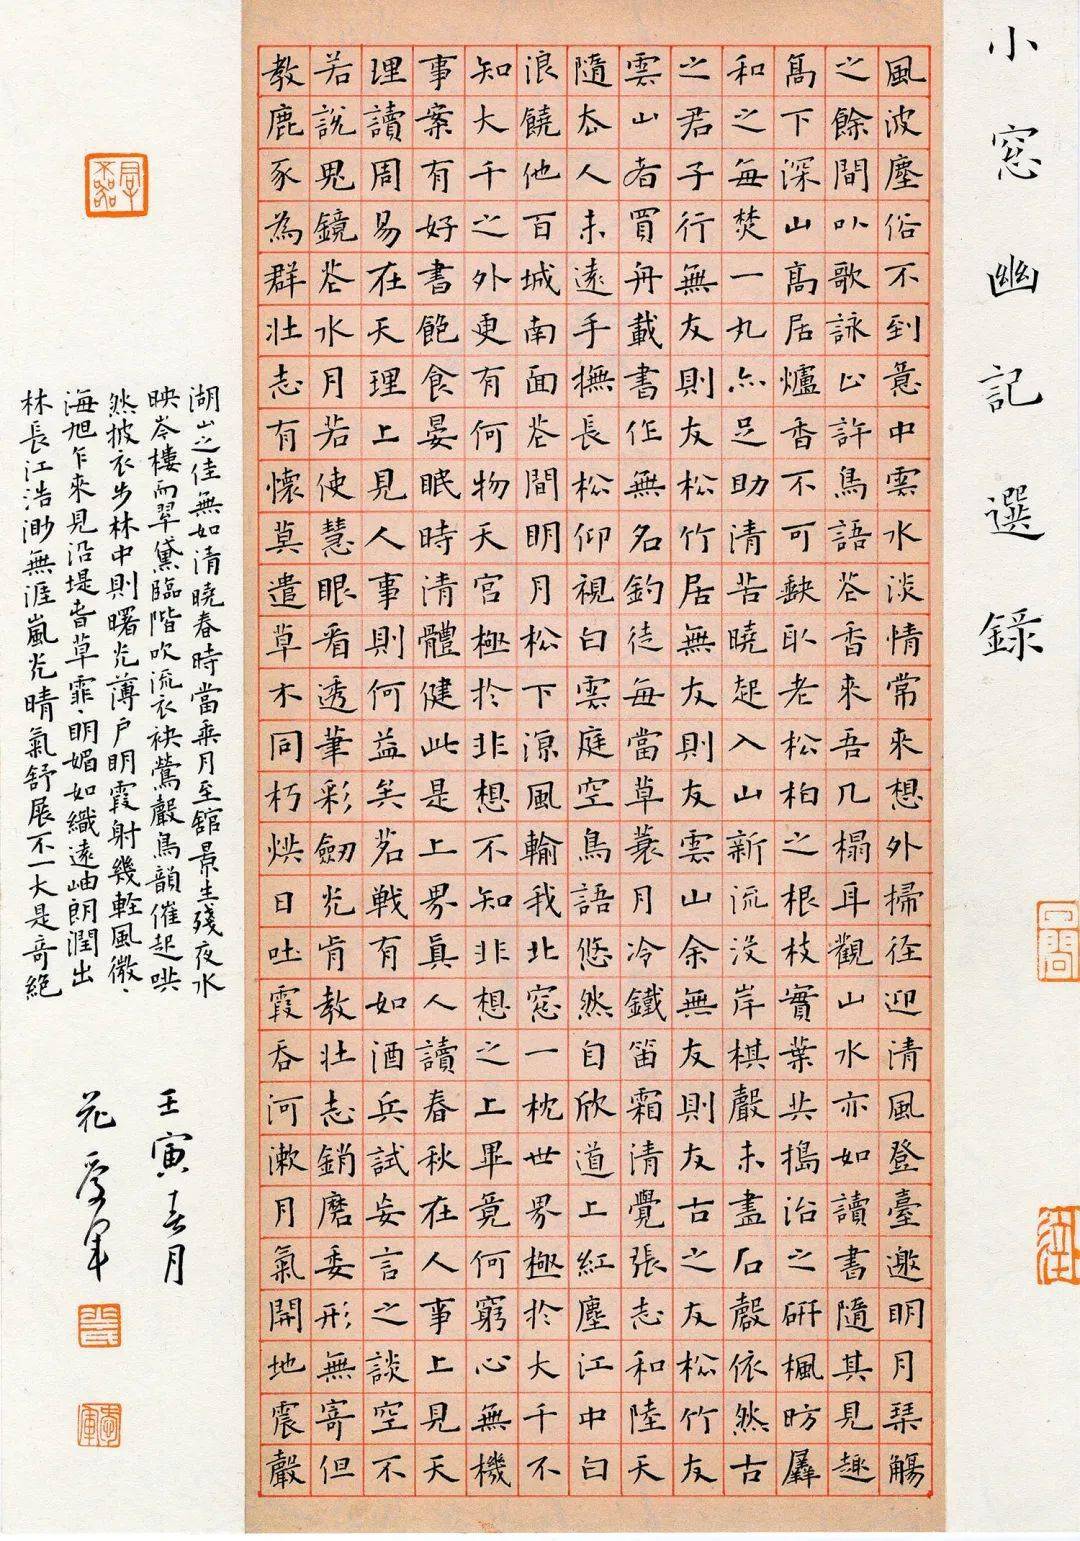 小窓幽記選錄
風波塵俗不到意中雲水淡情常來想外掃径迎清風登臺邀明月琹觴
之餘間以歌詠止許鳥語花香來吾几榻耳觀山水亦如讀書隨其見趣
高下深山高居爐香不可缺取老松柏之根枝實葉共搗治之研楓昉羼
和之每焚一丸亦足助清苦曉起入山新流沒岸棋聲未盡石磬依然古
之君子行無友則友松竹居無友則友雲山余無友則友古之友松竹友
雲山者買舟載書作無名釣徒每當草蓑月冷鐵笛霜清覺張志和陸天
隨去人未遠手撫長松仰視白雲庭空鳥語悠然自欣道上紅塵江中白
浪饒他百城南面花間明月松下涼風輸我北窓一枕世界極於大千不
知大千之外更有何物天宮極於非想不知非想之上畢竟何窮心無機
事案有好書飽食晏眠時清體健此是上界真人讀春秋在人事上見天
理讀周易在天理上見人事則何益矣茗戰有如酒兵試妄言之談空不
若說鬼鏡花水月若使慧眼看透筆彩劒光肯教壯志銷磨委形無寄但
教鹿豕為群壯志有懷莫遣草木同朽烘日吐霞吞河漱月氣開地震聲
湖山之佳無如清曉春時當乘月至館景生殘夜水
映岑樓而翠黛臨階吹流衣袂鶯聲鳥韻催起哄
然披衣步林中則曙光薄户明霞射幾輕風微、
海旭乍來見沿堤春草霏、明媚如織遠岫朗潤出
林長江浩渺無涯嵐光晴氣舒展不一大是奇絕
壬寅春月
花愛軍